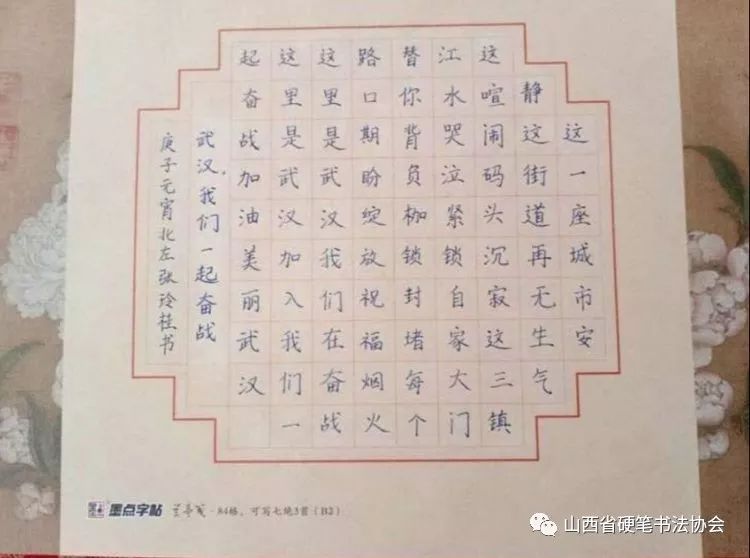 这一座城市安
静这街道再无生气
这喧闹码头沉寂这三镇
江水哭泣紧锁自家大门
替你背负枷锁封堵每个
路口期盼绽放祝福烟火
这里是武汉我们在奋战
这里是武汉加入我们一
起奋战加油美丽武汉
武汉,我们一起奋战
庚子元宵北左张玲桂书
墨点字帖 兰亭成·84格,可写七绝3首(B2)
山西省硬笔书法协会